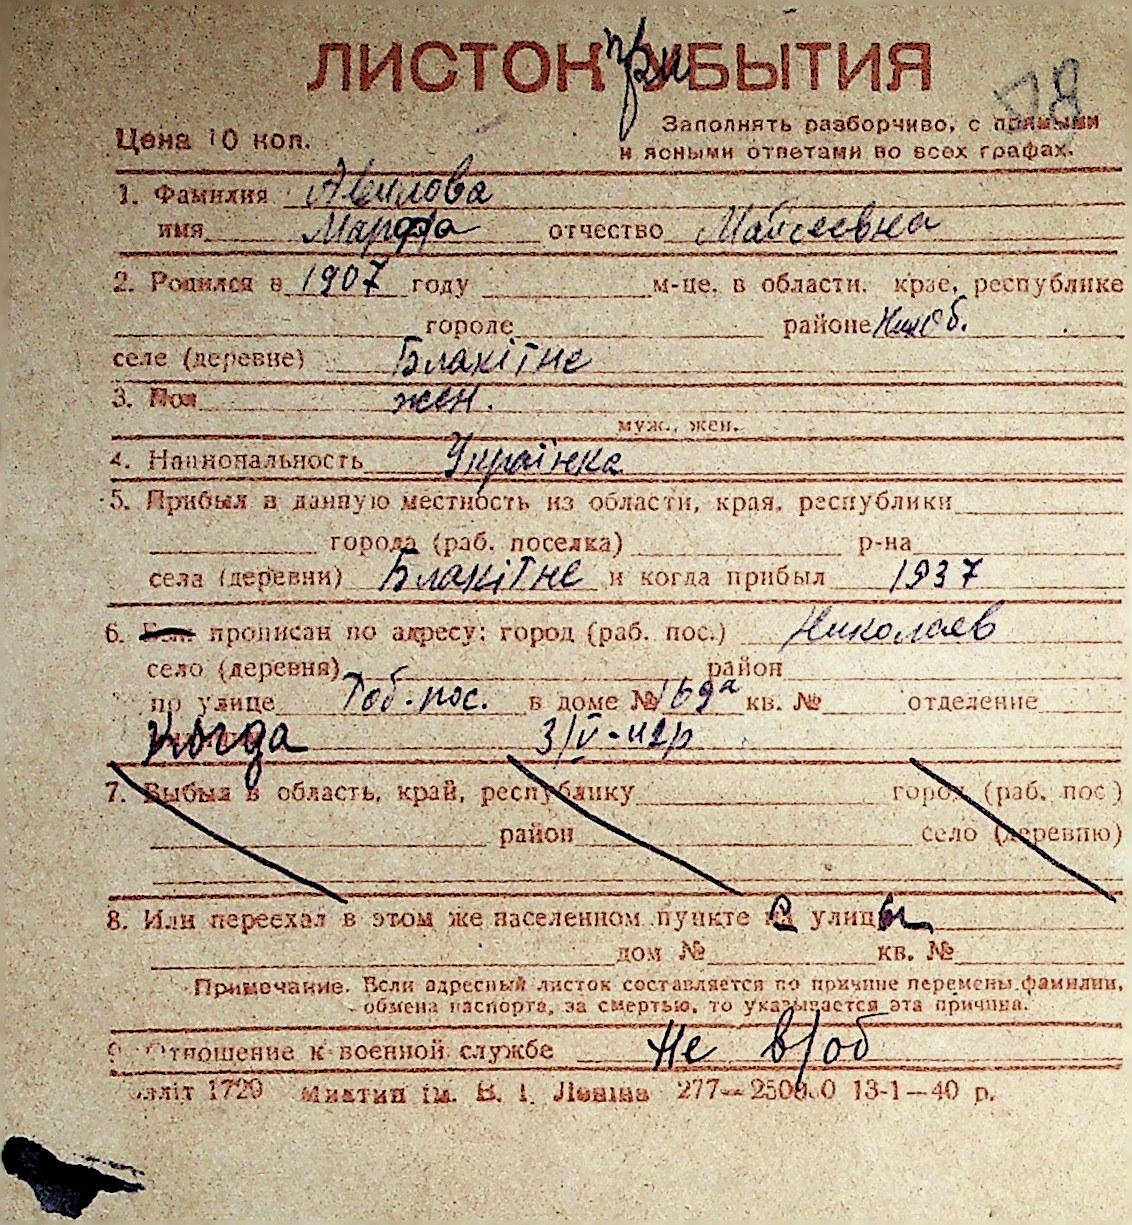 ЛИСТОК при УБЫТИЯ
78
Цена 10 коп.
Заполнять разборчиво, с прямыми
и ясными ответами во всех графах.
1. Фамилия Авилова
имя Марфа отчество Мойсеевна
2. Родился в 1907 году м-це, в области, крае, республике
городе районе Ник об.
селе (деревне) Блакітне
3. Пол жен.
муж., жен.
4. Национальность Українка
5. Прибыл в данную местность из области, края, республики
города (раб. поселка) р-на
села (деревни) Блакітне и когда прибыл 1937
6. Был прописан по адресу: город (раб. пос.) Николаев
село (деревня) район
по улице Роб. пос. в доме № 169а кв. № отделение
Когда 3/V-42р
7. Выбыл в область, край, республику город (раб. пос)
район село (деревню)
8. Или переехал в этом же населенном пункте с улицы
дом № кв. №
Примечание. Если адресный листок составляется по причине перемены фамилии,
обмена паспорта, за смертью, то указывается эта причина.
9. Отношение к военной службе Не в/об
1720 Миктип ім. В. І. Леніна 277—250000 13-1—40 р.